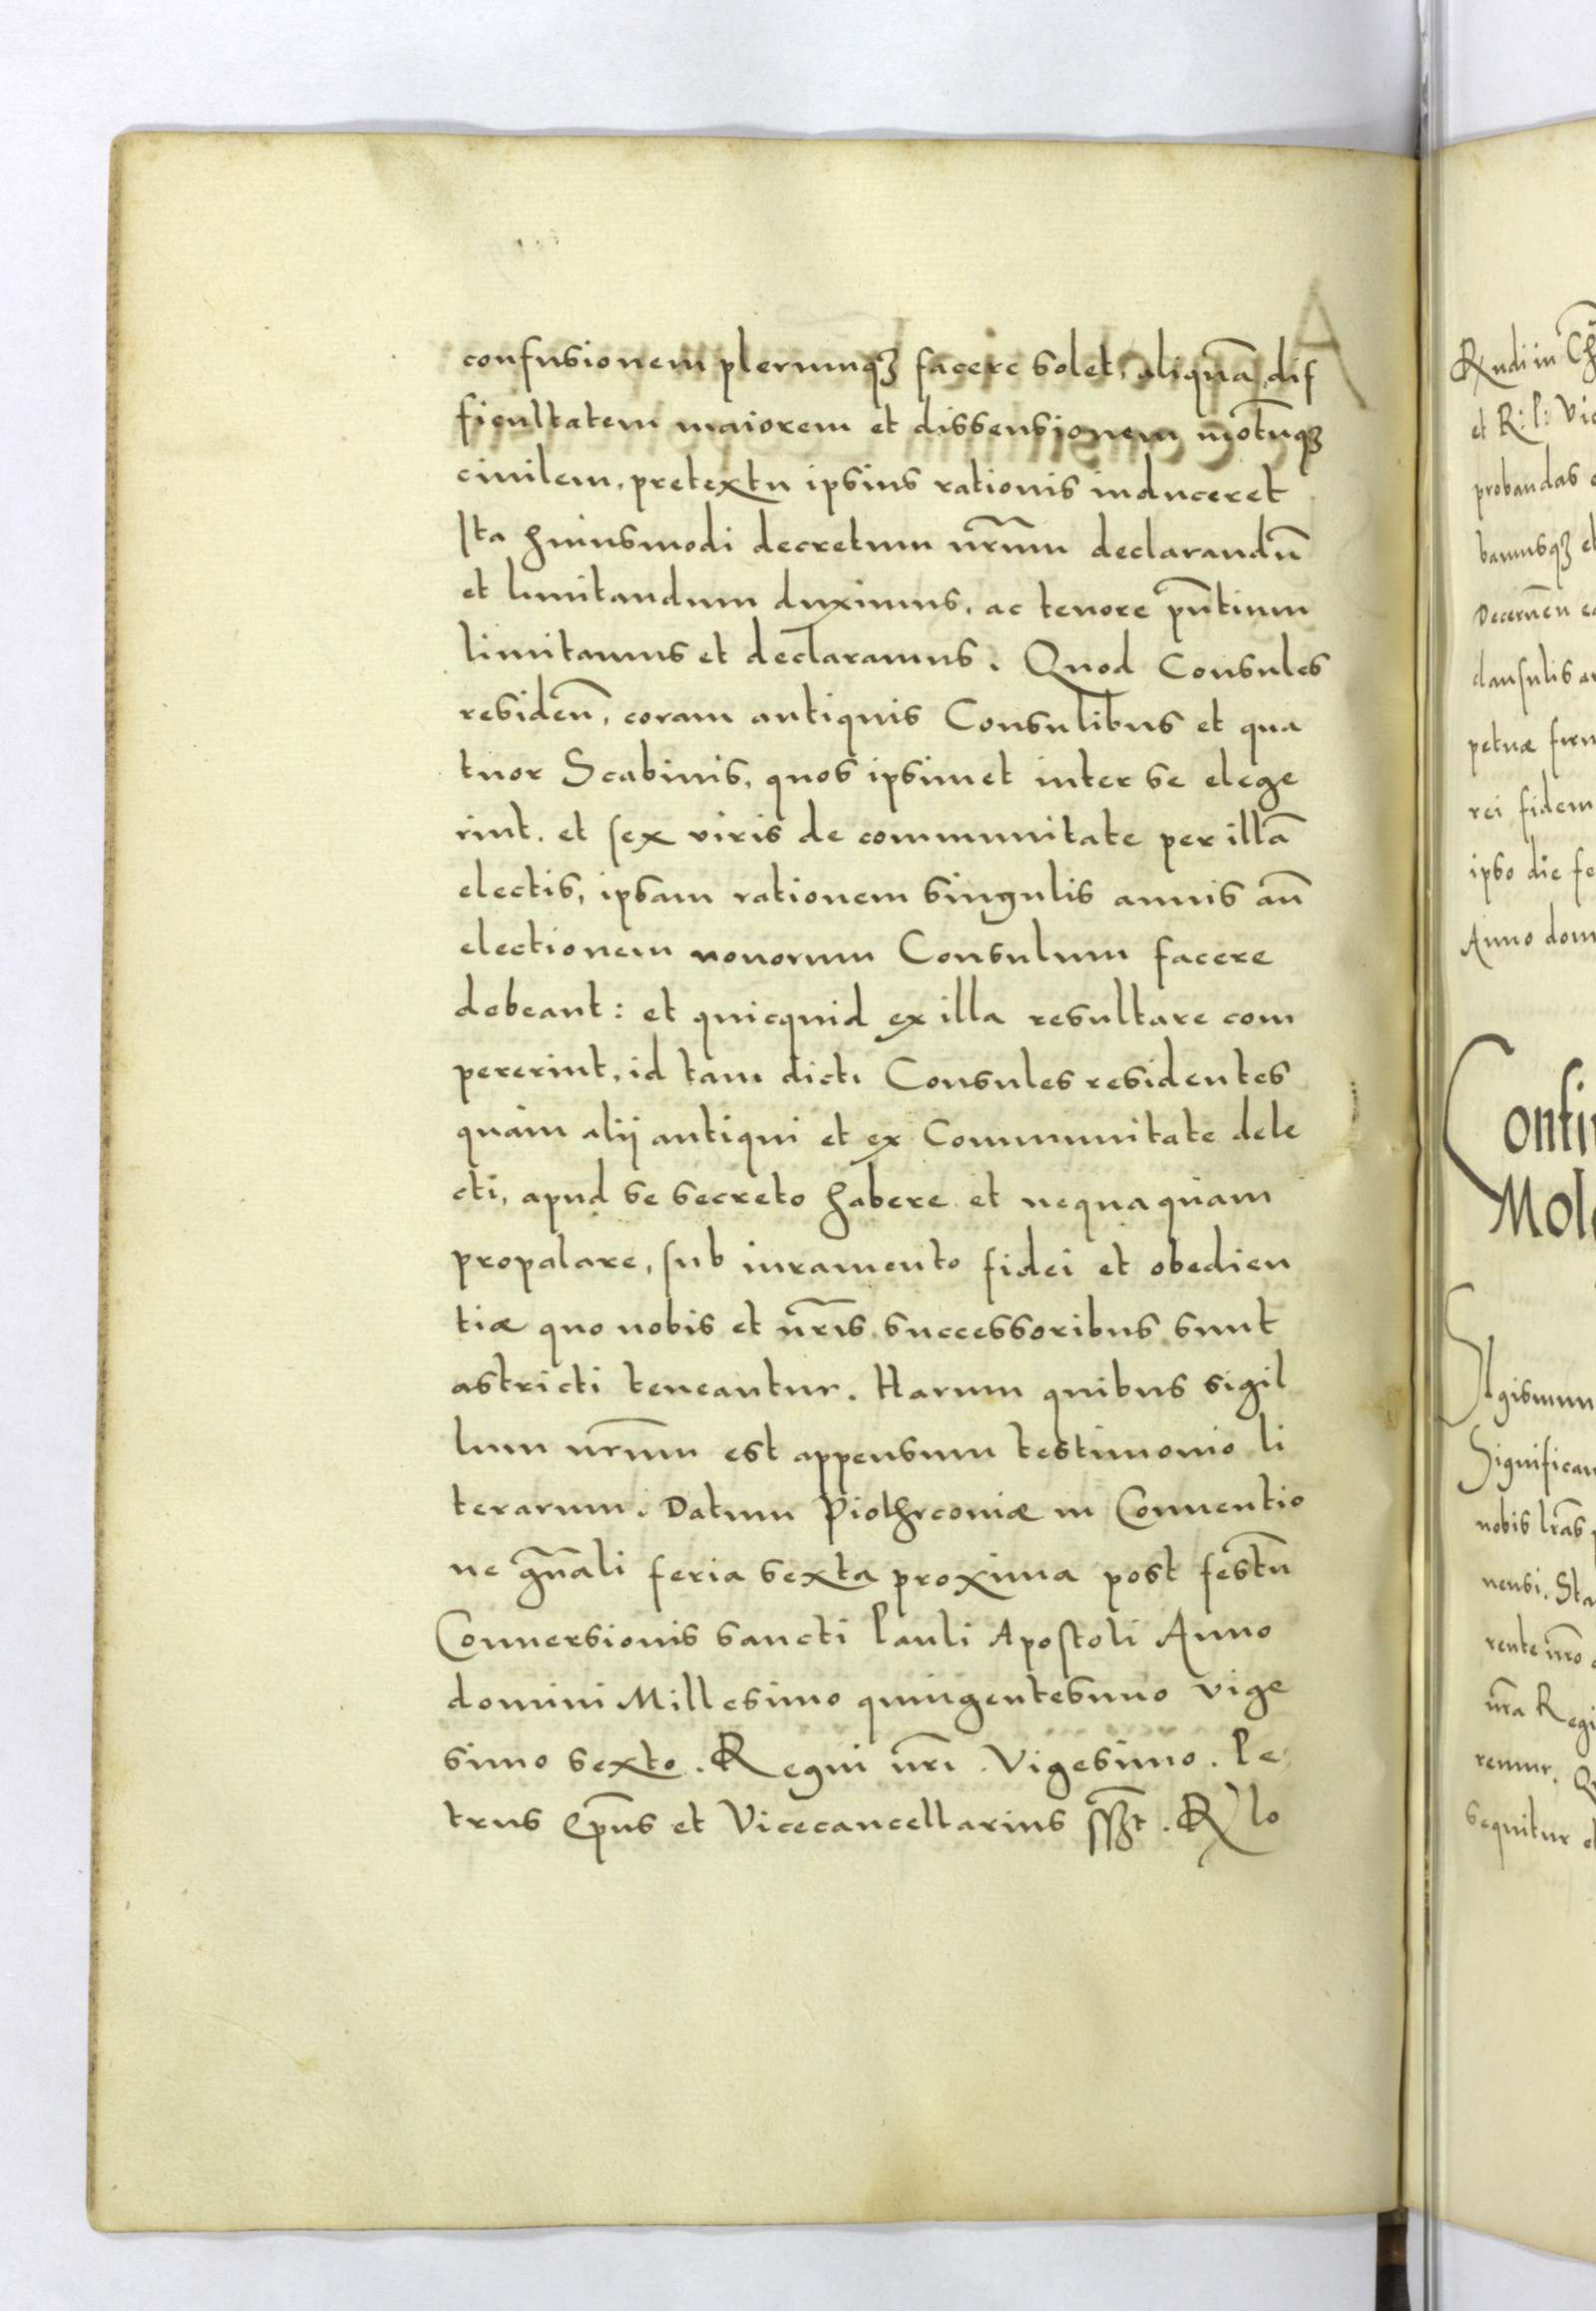 confusionem plerumqꝫ facere solet, aliquā dif
ficultatem maiorem et dissensionem motūqꝫ
ciuilem, pretextu ipsius rationis induceret
Ita huiusmodi decretum nr̄um declarandū
et limitandum duximus, ac tenore pn̄tium
limitamus et declaramus. Quod Consules
residen̄, coram antiquis Consulibus et qua
tuor Scabinis, quos ipsimet inter se elege
rint. et sex viris de communitate per illā
electis, ipsam rationem singulis annis an̄
electionem nouorum Consulum facere
debeant: et quicquid ex illa resultare com
pererint, id tam dicti Consules residentes
quàm alij antiqui et ex Communitate dele
cti, apud se secreto habere et nequaquàm
propalare, sub iuramento fidei et obedien
tiæ quo nobis et nr̄is successoribus sunt
astricti teneantur. Harum quibus sigil
lum nr̄um est appensum testimonio li
terarum. Datum Piothrconiæ in Conuentio
ne gn̄ali feria sexta proxima post festū
Conuersionis sancti Pauli Apostoli Anno
domini Millesimo quingentesimo vige
simo sexto. Regni nr̄i. Vigesimo. Pe
trus Ep̄us et Vicecancellarius ssꝫt. Rlo
Rndi in Ch
et R: P: Vic
probandas
bamusqꝫ
Decernen
clausulis
petuæ firm
rei fidem
ipso die fe
Anno dom
Confir
Mol
SIgismun
Significam
nobis lr̄as
nensi. Sta
rente nr̄o
nr̄a Regi
remur. Q
sequitur